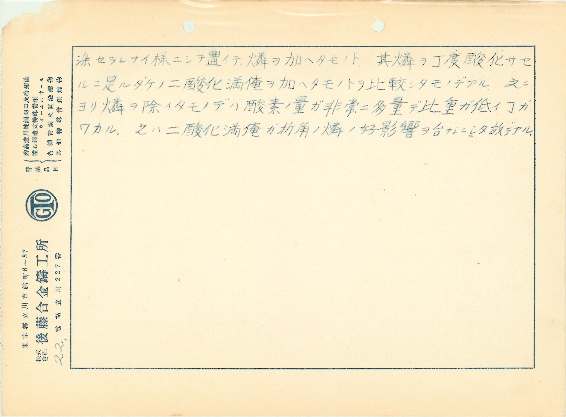 染セラレナイ様ニシテ置イテ、燐ヲ加ヘタモノト、其燐ヲ丁度酸化サセ
ルニ足ルダケノ二酸化満俺ヲ加ヘタモノトヲ比較シタモノデアル。之ニ
ヨリ燐ヲ除イタモノデハ酸素ノ量ガ非常ニ多量デ比重ガ低イヿガ
ワカル。之ハ二酸化満俺ガ折角ノ燐ノ好影響ヲ台ナシニシタ故デアル。
GTO
東京都立川市錦町6〜87
株式会社 後藤合金鋳工所
電話立川227番
22.